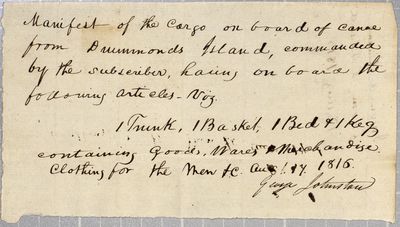 Manifest of the cargo on board of canoe
from Drummonds Island, commanded
by the subscriber, having on board the
following articles - Viz.
1 Trunk, 1 Basket, 1 Bed & 1 Keg
containing Goods, Wares & Merchandize
Clothing for the Men &c. Aug. 1816
Johnston